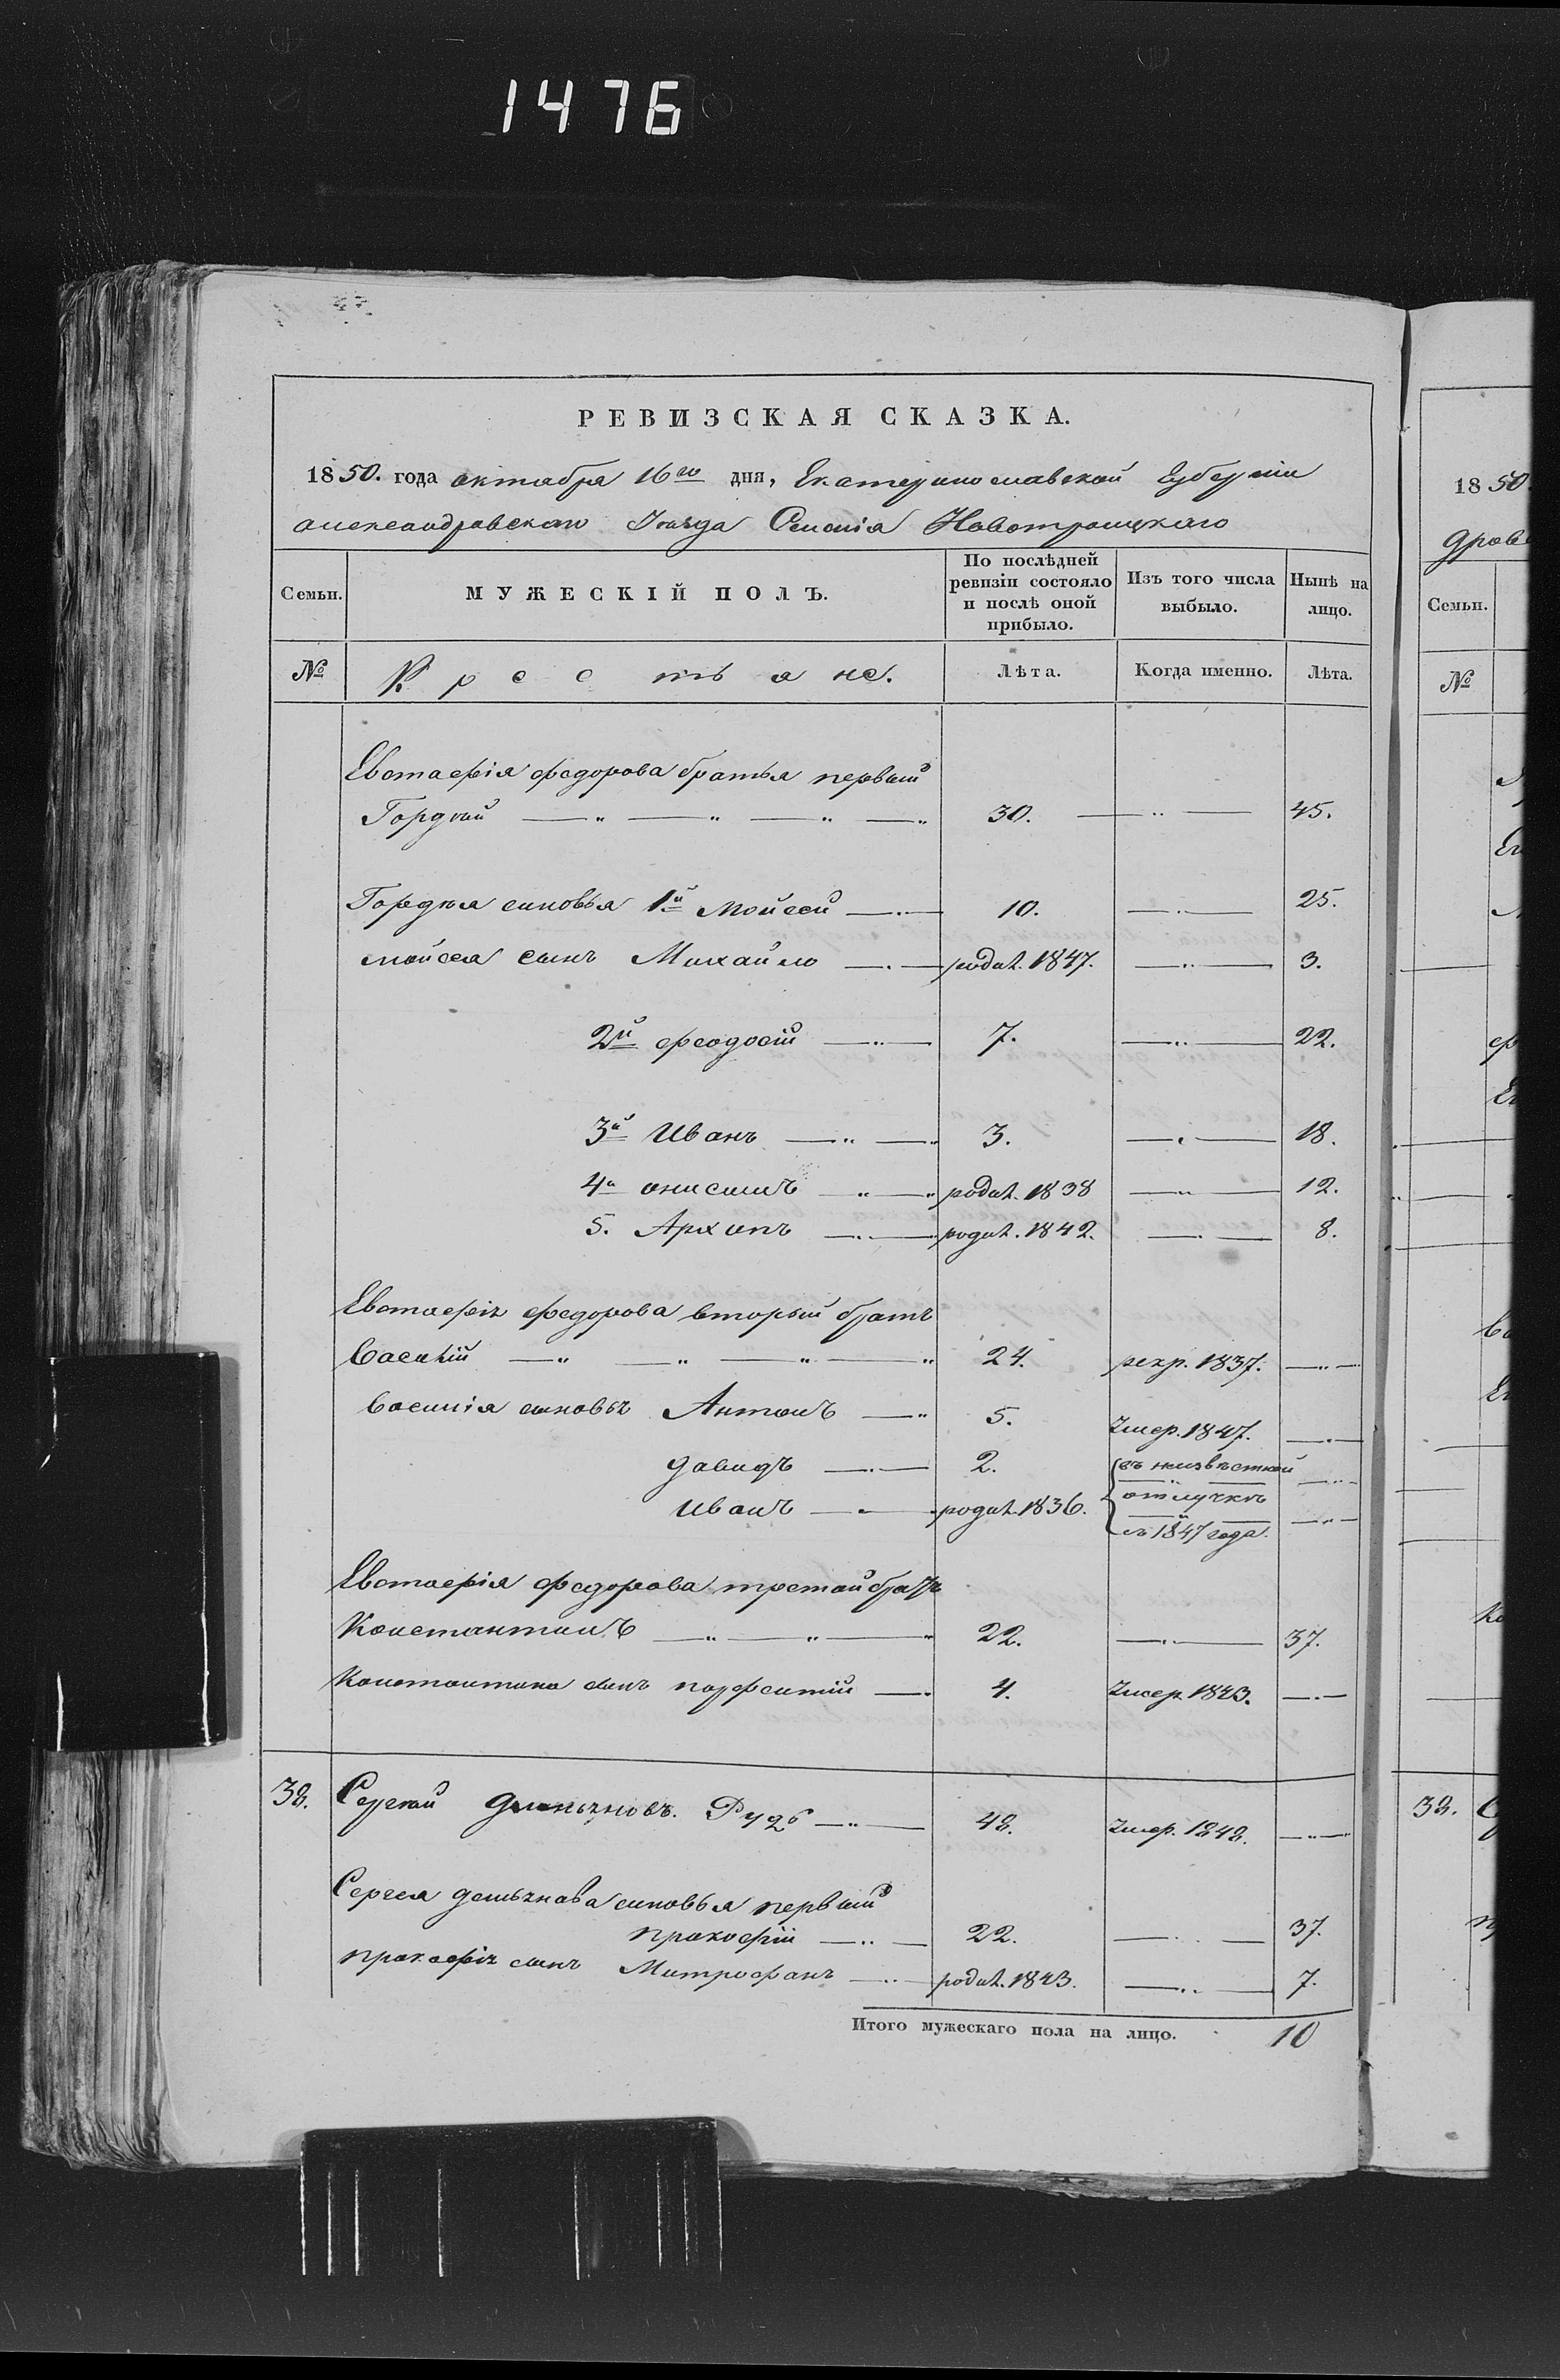 1476
РЕВИЗСКАЯ СКАЗКА.
1850. года октабря 16го дня, Екатеринославской Губерніи
александровскаго Уѣзда Селенія Новотроицкаго
Семьи. МУЖЕСКІЙ ПОЛЪ. По послѣдней ревизіи состояло и послѣ оной прибыло. Изъ того числа выбыло. Нынѣ на лицо.
№ Крестьяне. Лѣта. Когда именно. Лѣта.
Евстафія федорова братья первый
Гордѣй 30. 45.
Гордѣя сыновья 1й Мойсей 10. 25.
мойсея сынъ Михайло родил. 1847. 3.
2й феодосій 7. 22.
3й Иванъ 3. 18.
4й онисимъ родил. 1838 12.
5. Архипъ родил. 1842. 8.
Евстафія федорова вторый братъ
Василій 24. рекр. 1837.
Василія сыновья Антонъ 5. Умер. 1847.
давидъ 2. въ неизвѣстной
отлучкѣ
Иванъ родил. 1836. съ 1847 года.
Евстафія федорова третій братъ
Константинъ 22. 37.
Константина сынъ парфентій 4. Умер. 1843.
38. Сергѣй Руд 48. Умер. 1848.
Сергея сыновья первый
прокофій 22. 37.
прокофія сынъ Митрофанъ родил. 1843. 7.
Итого мужескаго пола на лицо. 10
1850.
дров
Семьи.
№
38. С